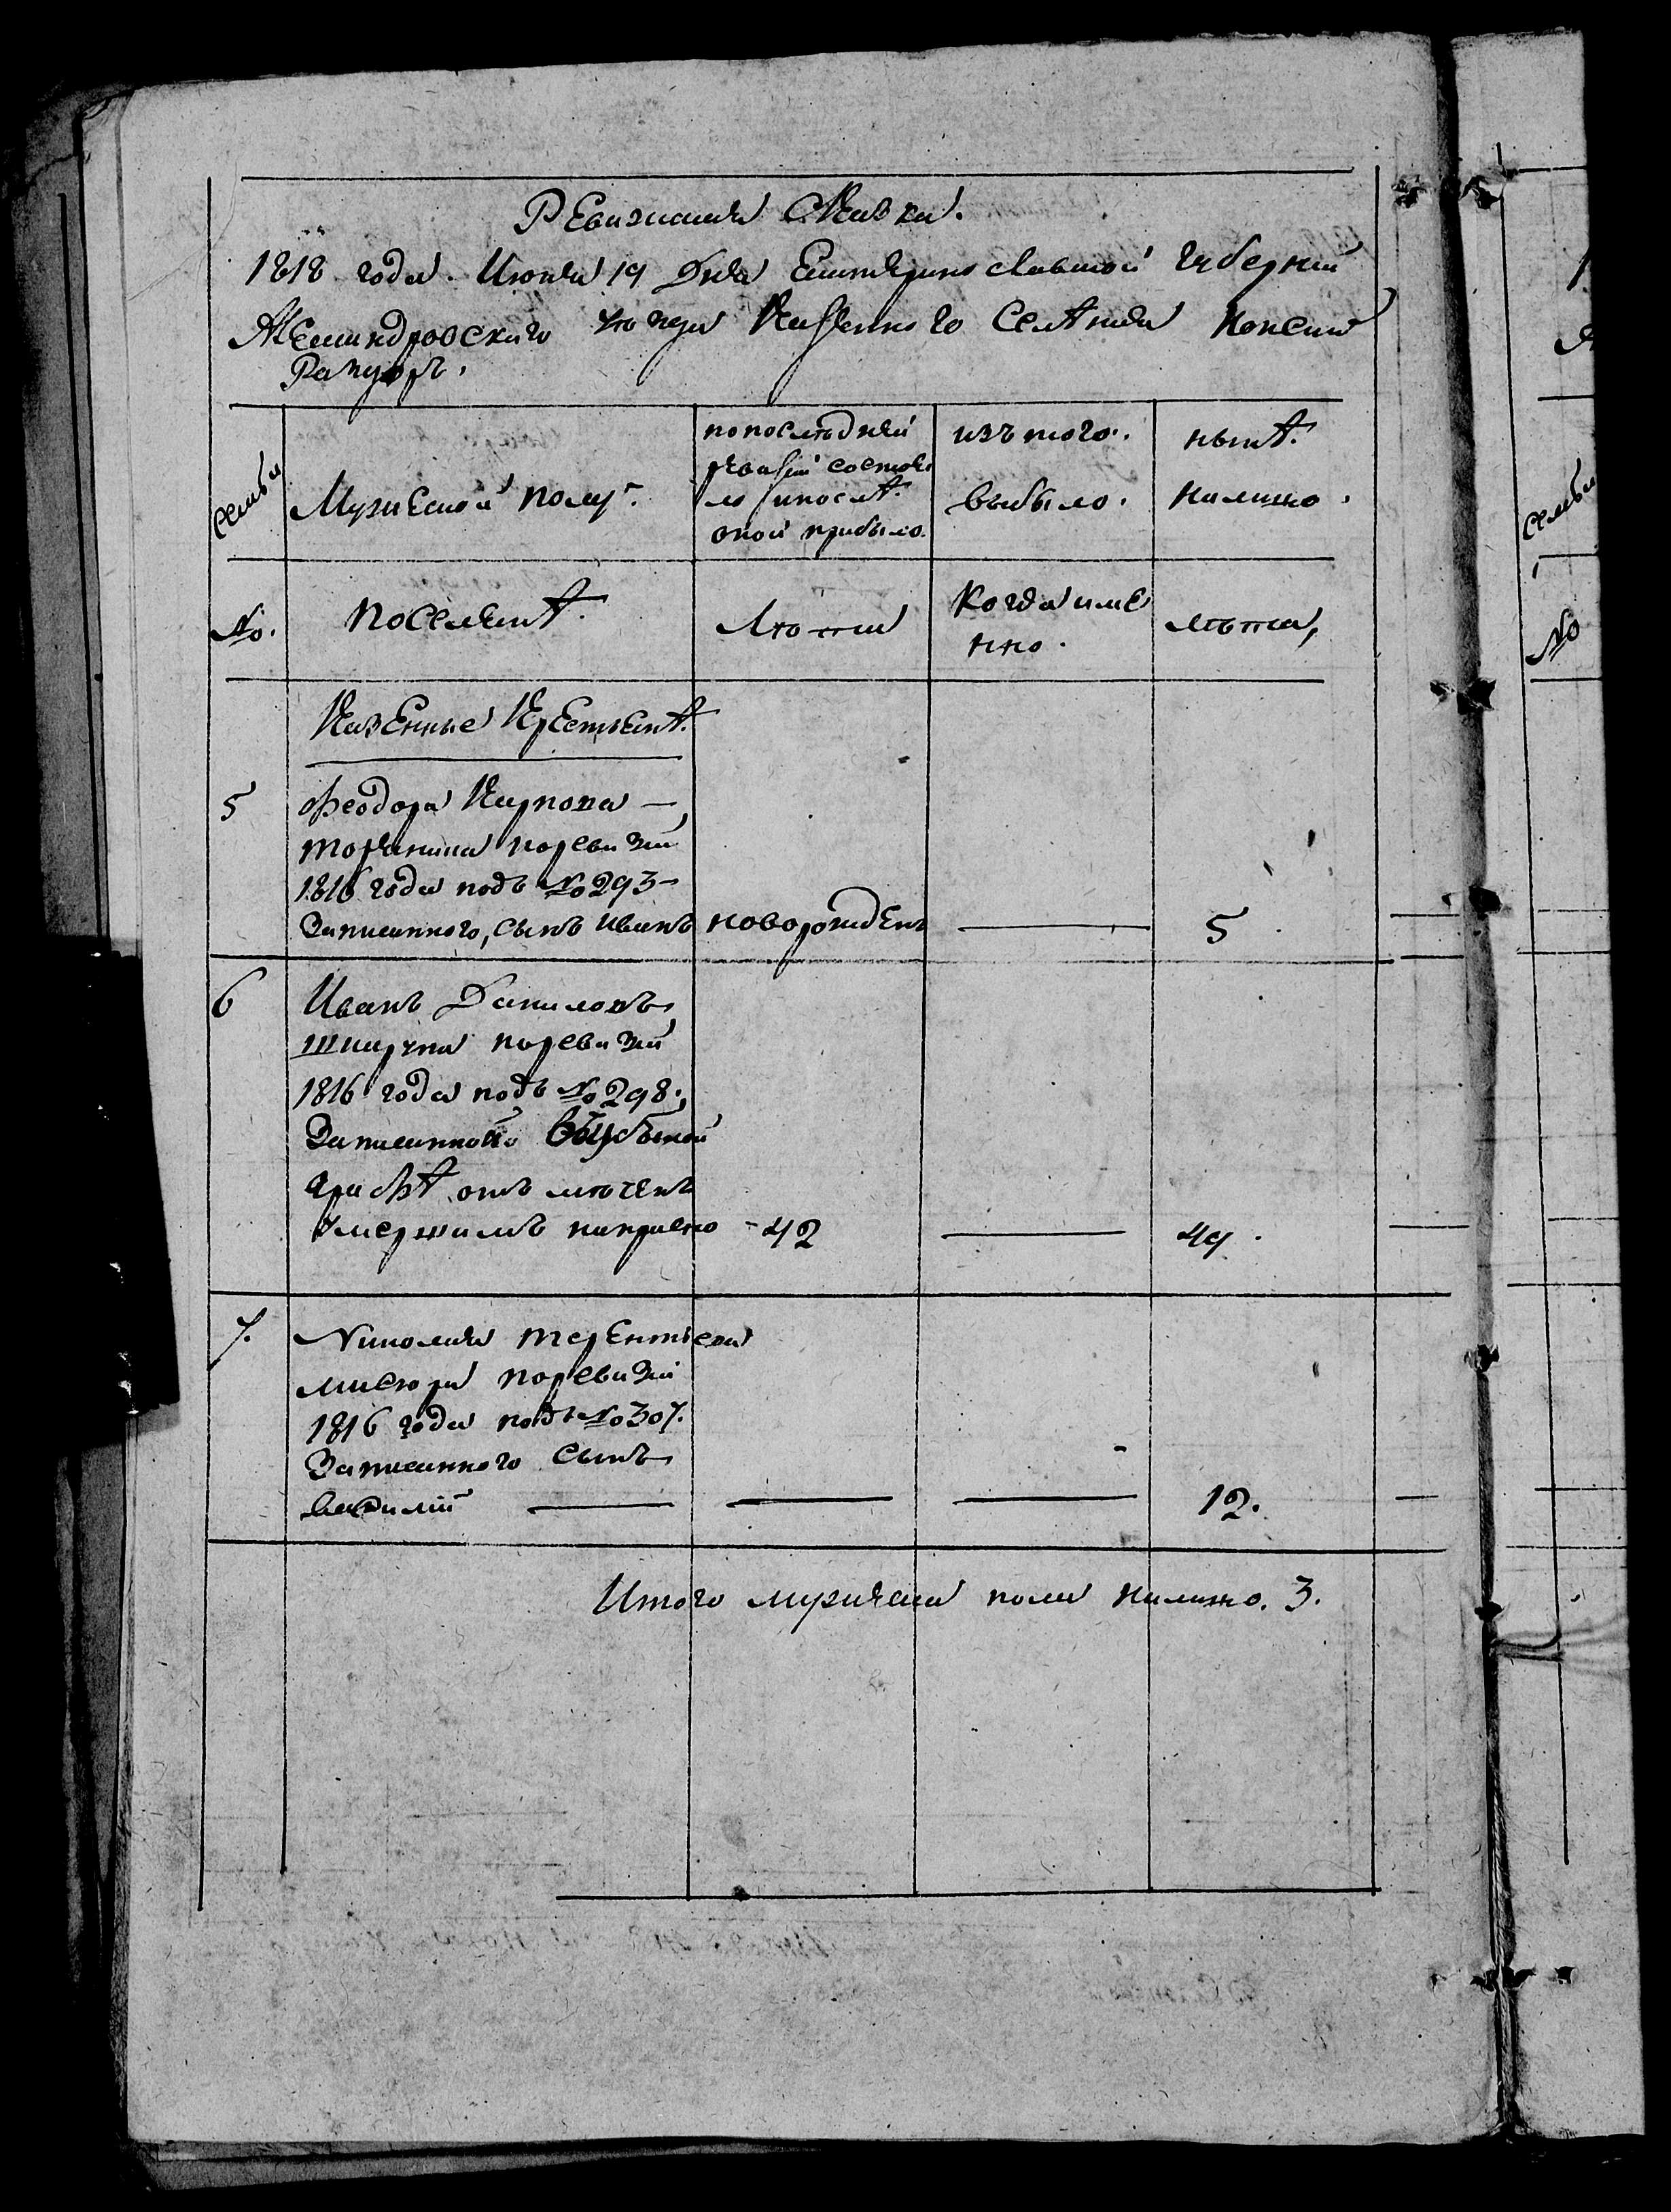 Ревизская Сказка.
1818 года Июня 19 Дня Екатеринославской губернии
Александровского уезда Казенного Селения Конских
Раздоръ,
Семьи
Мужеской полъ.
по последней
ревизии состоя
ло и после
оной прибыло.
изъ того
выбыло.
ныне
на лицо.
№.
Поселяне
Лета
Когда име
нно.
лета,
Казенные Крестьяне
5
Феодора Карпова
по ревизии
1816 года подъ № 293
записанного, сынъ Иванъ новорожденъ — 5
6
Иванъ Даниловъ
по ревизии
1816 года подъ № 298.
графе отъ летъ
умершимъ 42 — 49.
7.
Николая Терентьева
мисюра по ревизии
1816 года подъ № 307.
записанного сынъ
Василий — — — 12.
Итого мужеска пола на лицо. 3.
Семьи
№